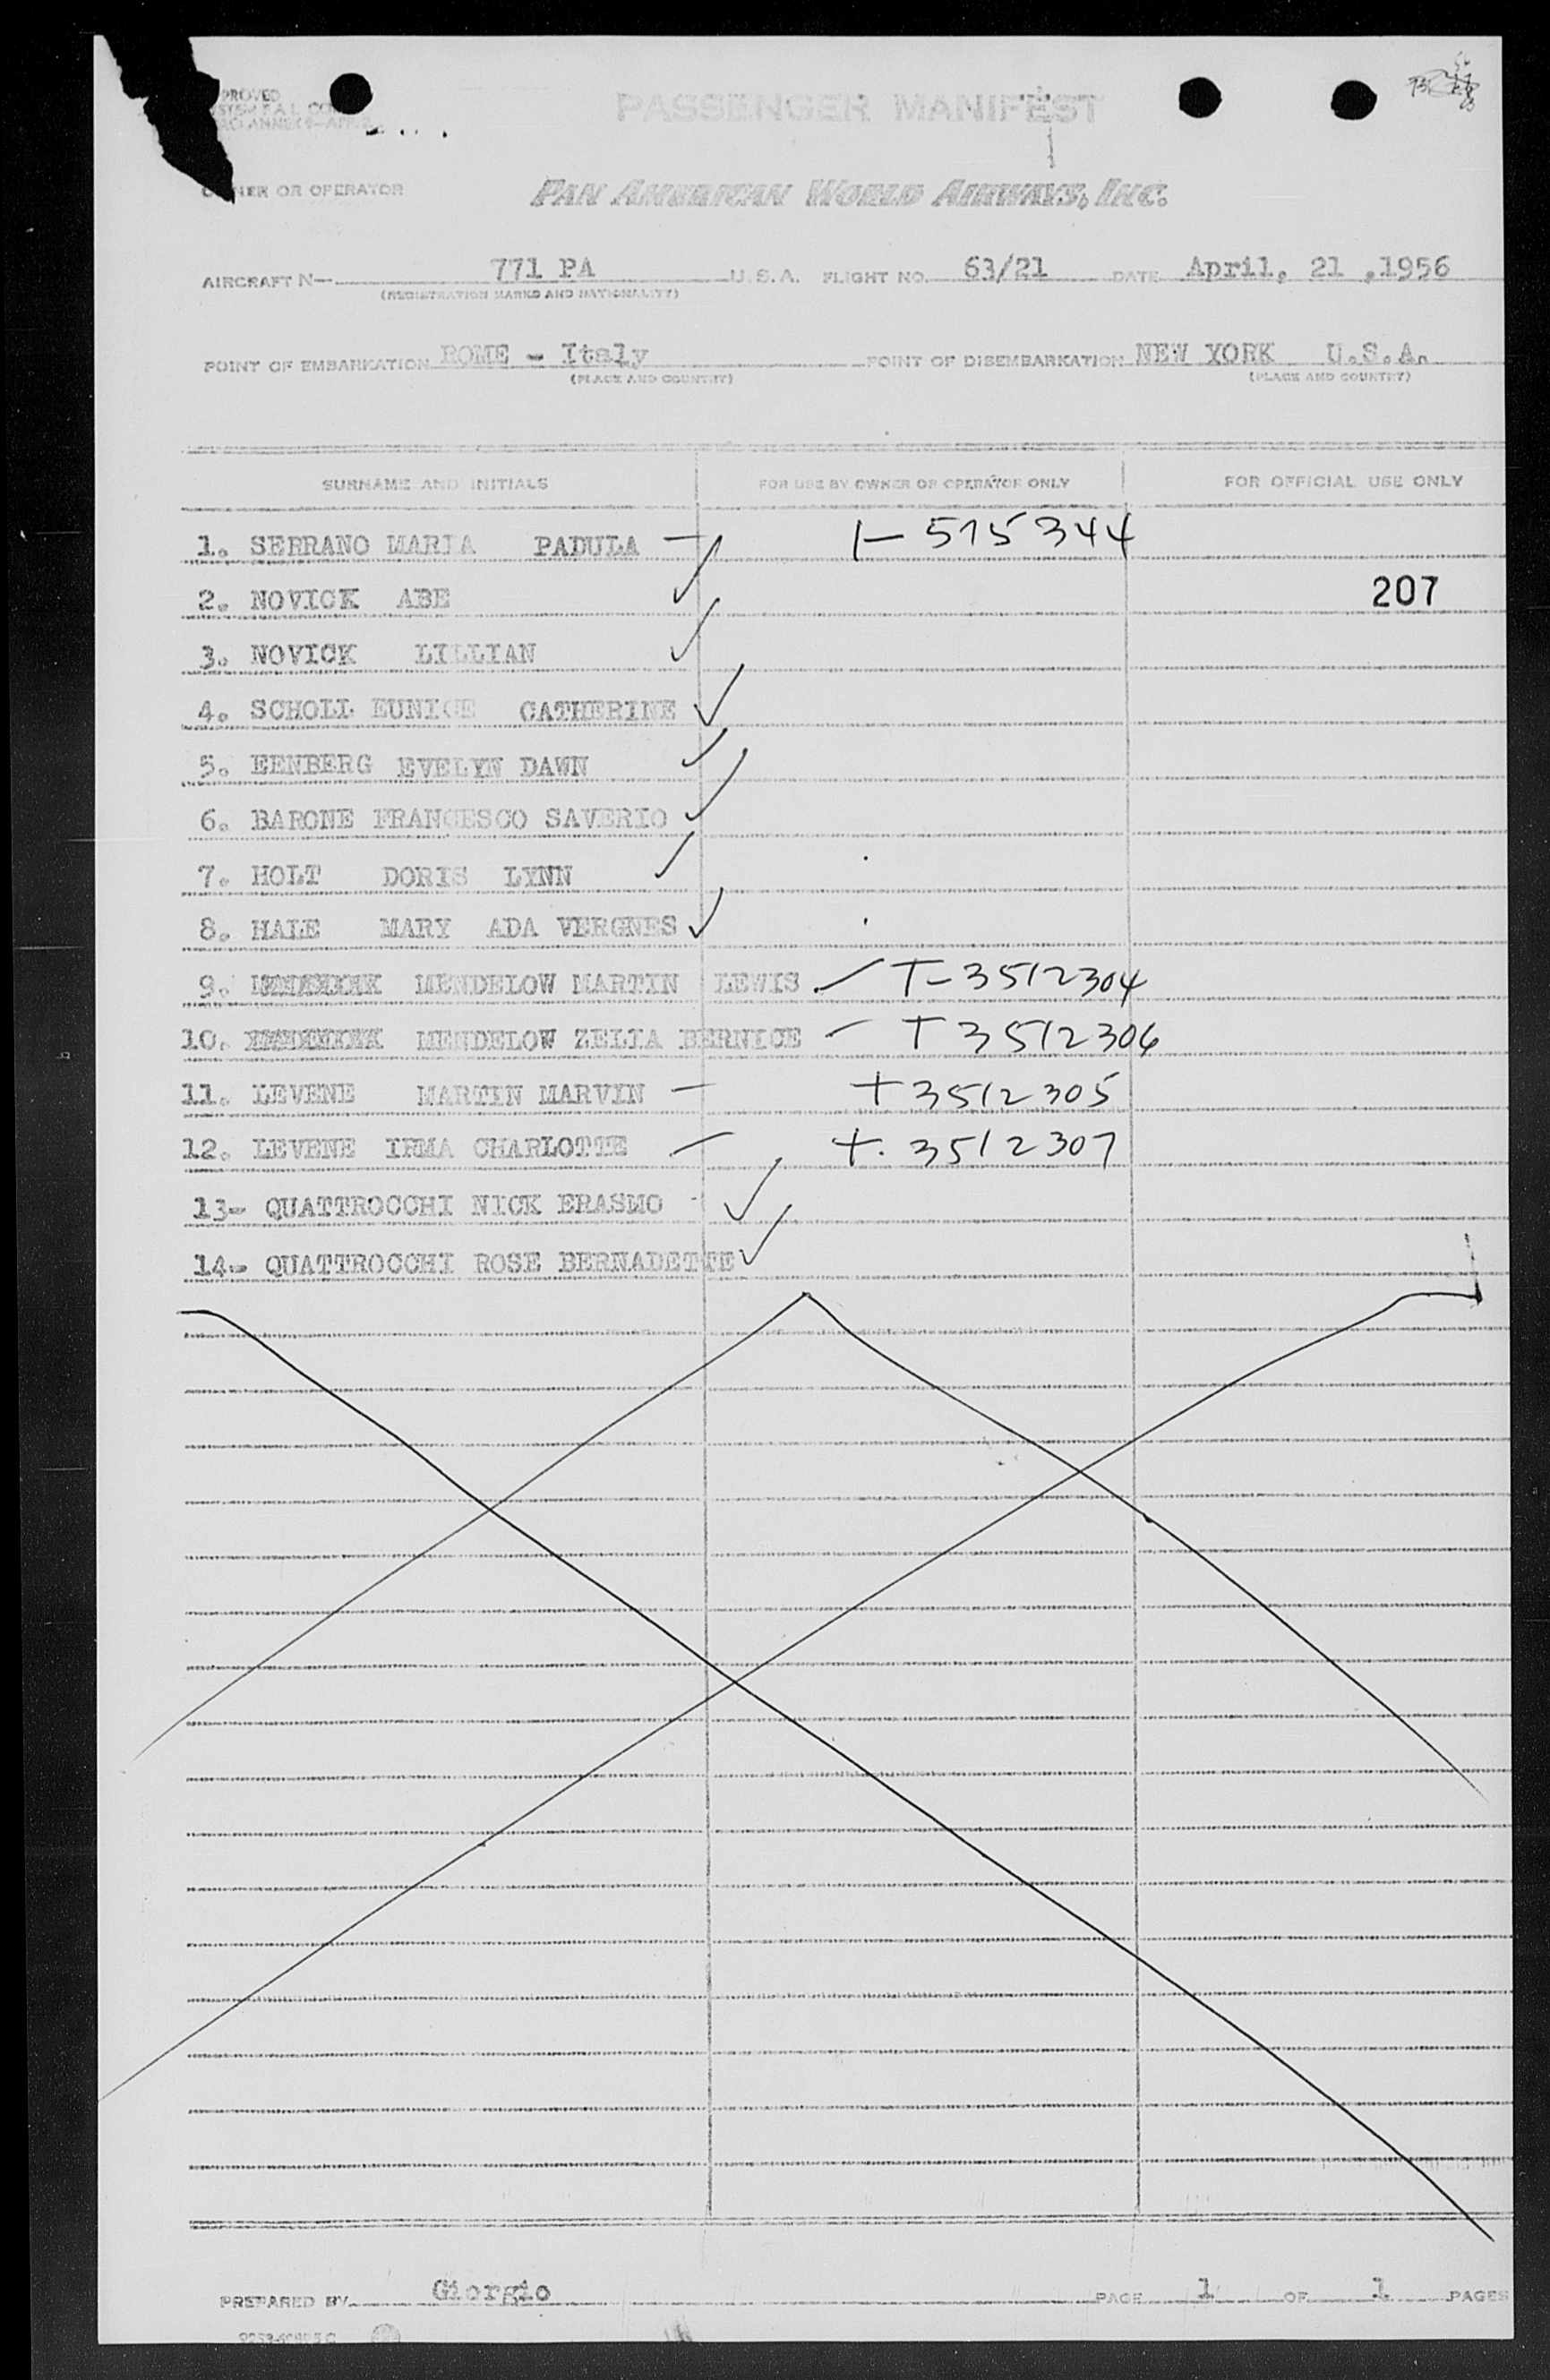 PROVED
PASSENGER MANIFEST
OWNER OR OPERATOR PAN AMERICAN WORLD AIRWAYS, INC.
AIRCRAFT N— 771 PA U.S.A. FLIGHT NO. 63/21 DATE April, 21 ,1956
(REGISTRATION MARKS AND NATIONALITY)
POINT OF EMBARKATION ROME - Italy POINT OF DISEMBARKATION NEW YORK U.S.A.
(PLACE AND COUNTRY) (PLACE AND COUNTRY)
SURNAME AND INITIALS FOR USE BY OWNER OR OPERATOR ONLY FOR OFFICIAL USE ONLY
1. SERRANO MARIA PADULA — 515344
2. NOVICK ABE ✓ 207
3. NOVICK LILLIAN ✓
4. SCHOLL EUNICE CATHERINE ✓
5. EENBERG EVELYN DAWN ✓
6. BARONE FRANCESCO SAVERIO ✓
7. HOLT DORIS LYNN ✓
8. HALE MARY ADA VERGNES ✓
9. MENDELOW MARTIN LEWIS ✓ T-3512304
10. MENDELOW ZELIA BERNICE — T 3512306
11. LEVENE MARTIN MARVIN — T 3512305
12. LEVENE IRMA CHARLOTTE — T. 3512307
13- QUATTROCCHI NICK ERASMO ✓
14- QUATTROCCHI ROSE BERNADETTE ✓
PREPARED BY Giorgio PAGE 1 OF 1 PAGES